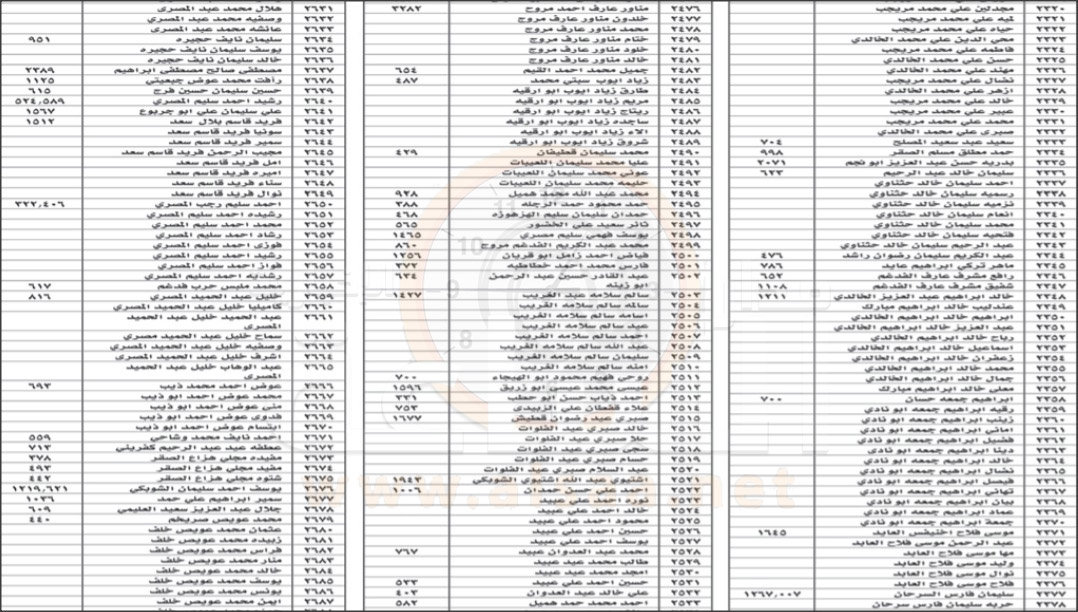 ٢٣٢٠ مجدلين علي محمد مريجب
٢٣٢١ لميه علي محمد مريجب
٢٣٢٢ حياه علي محمد مريجب
٢٣٢٣ محي الدين علي محمد الخالدي
٢٣٢٤ فاطمه علي محمد مريجب
٢٣٢٥ حسن علي محمد الخالدي
٢٣٢٦ مهند علي محمد الخالدي
٢٣٢٧ نضال علي محمد مريجب
٢٣٢٨ ازهر علي محمد الخالدي
٢٣٢٩ خالد علي محمد مريجب
٢٣٣٠ عبير علي محمد مريجب
٢٣٣١ محمد علي محمد مريجب
٢٣٣٢ صبري علي محمد الخالدي
٢٣٣٣ سعيد عبد سعيد المسلح ٧٠٤
٢٣٣٤ حمد مطلق مسلم الصقر ٩٩٨
٢٣٣٥ بدريه حسن عبد العزيز ابو نجم ٢٠٧١
٢٣٣٦ سليمان خالد عبد الرحيم ٦٢٣
٢٣٣٧ احمد سليمان خالد حثناوي
٢٣٣٨ رسميه سليمان خالد حثناوي
٢٣٣٩ نزميه سليمان خالد حثناوي
٢٣٤٠ انعام سليمان خالد حثناوي
٢٣٤١ محمد سليمان خالد حثناوي
٢٣٤٢ فتحيه سليمان خالد حثناوي
٢٣٤٣ عبد الرحيم سليمان خالد حثناوي
٢٣٤٤ عبد الكريم سليمان رضوان راشد ٤٧٦
٢٣٤٥ ماهر تركي ابراهيم عايد ٧٨٦
٢٣٤٦ رافع مشرف عارف الفدعم ٦٥٢
٢٣٤٧ شفيق مشرف عارف الفدعم ١١٠٨
٢٣٤٨ خالد ابراهيم عبد العزيز الخالدي ١٢١١
٢٣٤٩ عندليب خالد ابراهيم مبارك
٢٣٥٠ ابراهيم خالد ابراهيم الخالدي
٢٣٥١ عبد العزيز خالد ابراهيم الخالدي
٢٣٥٢ رباح خالد ابراهيم الخالدي
٢٣٥٣ اسماعيل خالد ابراهيم الخالدي
٢٣٥٤ زعفران خالد ابراهيم الخالدي
٢٣٥٥ محمد خالد ابراهيم الخالدي
٢٣٥٦ جمال خالد ابراهيم الخالدي
٢٣٥٧ معلى خالد ابراهيم مبارك
٢٣٥٨ ابراهيم جمعه حسان ٧٠٠
٢٣٥٩ رقيه ابراهيم جمعه ابو نادي
٢٣٦٠ زينب ابراهيم جمعه ابو نادي
٢٣٦١ اماني ابراهيم جمعه ابو نادي
٢٣٦٢ فضيل ابراهيم جمعه ابو نادي
٢٣٦٣ دينا ابراهيم جمعه ابو نادي
٢٣٦٤ خالد ابراهيم جمعه ابو نادي
٢٣٦٥ نضال ابراهيم جمعه ابو نادي
٢٣٦٦ فيصل ابراهيم جمعه ابو نادي
٢٣٦٧ تهاني ابراهيم جمعه ابو نادي
٢٣٦٨ بيان ابراهيم جمعه ابو نادي
٢٣٦٩ عماد ابراهيم جمعه ابو نادي
٢٣٧٠ جمعة ابراهيم جمعه ابو نادي
٢٣٧١ موسى فلاح اخنيفس العايد ١٦٤٥
٢٣٧٢ عبد الرحمن موسى فلاح العايد
٢٣٧٣ مها موسى فلاح العايد
٢٣٧٤ وليد موسى فلاح العايد
٢٣٧٥ نوال موسى فلاح العايد
٢٣٧٦ فلاح موسى فلاح العايد
٢٣٧٧ سليمان فارس السرحان ١٢٦٧,٠٠٧
٢٣٧٨ حربه سليمان فارس سرحان
٢٤٧٦ مناور عارف احمد مروح ٢٢٨٢
٢٤٧٧ خلدون مناور عارف مروح
٢٤٧٨ محمد مناور عارف مروح
٢٤٧٩ ختام مناور عارف مروح
٢٤٨٠ خلود مناور عارف مروح
٢٤٨١ خالد مناور عارف مروح
٢٤٨٢ جميل محمد احمد القيم ٦٥٤
٢٤٨٣ زياد ايوب سيتي محمد ٤٨٧
٢٤٨٤ طارق زياد ايوب ابو ارقيه
٢٤٨٥ مريم زياد ايوب ابو ارقيه
٢٤٨٦ ريتاج زياد ايوب ابو ارقيه
٢٤٨٧ ساجده زياد ايوب ابو ارقيه
٢٤٨٨ الاء زياد ايوب ابو ارقيه
٢٤٨٩ شروق زياد ايوب ابو ارقيه
٢٤٩٠ محمد سليمان قطيفان ٤٢٩
٢٤٩١ عليا محمد سليمان اللعبيات
٢٤٩٢ عوني محمد سليمان اللعبيات
٢٤٩٣ حليمه محمد سليمان اللعبيات
٢٤٩٤ محمد عبد الله محمد هميل ٩٢٨
٢٤٩٥ حمد محمود حمد الرجله ٣٨٨
٢٤٩٦ حمدان سليمان سليم الهزهوزه ٤٦٨
٢٤٩٧ ثائر سعيد علي الخشور ٥٦٥
٢٤٩٨ يوسف فهمي سليم مصري ١٤٦٥
٢٤٩٩ محمد عبد الكريم الفدعم مروح ٨٦٠
٢٥٠٠ فياض احمد زامل ابو قربان ١٢٥٦
٢٥٠١ فارس محمد احمد خطاطبه ٢٧٢
٢٥٠٢ عبد القادر حسين عبد الرحمن ٦٢٤
ابو زينه
٢٥٠٣ سالم سلامه عبد الغريب ١٤٢٧
٢٥٠٤ سالمه سالم سلامه الغريب
٢٥٠٥ اسامه سالم سلامه الغريب
٢٥٠٦ عبد سالم سلامه الغريب
٢٥٠٧ احمد سالم سلامه الغريب
٢٥٠٨ عبد الله سالم سلامه الغريب
٢٥٠٩ سليمان سالم سلامه الغريب
٢٥١٠ امنه سالم سلامه الغريب
٢٥١١ روحي فهيم محمود ابو الهيجاء ٧٠٠
٢٥١٢ عيسى محمد عيسى ابو زريق ١٥٩٦
٢٥١٣ احمد ذياب حسن ابو حطب ٢٣١
٢٥١٤ علاء قفطان علي الزبيدي ٧٥٣
٢٥١٥ صبري عبد رضوان قطيش ١٦٧٧
٢٥١٦ خالد صبري عبد الفلوات
٢٥١٧ حلا صبري عبد الفلوات
٢٥١٨ سجى صبري عبد الفلوات
٢٥١٩ حسام صبري عبد الفلوات
٢٥٢٠ عبد السلام صبري عبد الفلوات
٢٥٢١ اشتيوي عبد الله اشتيوي الشويكي ١٩٤٢
٢٥٢٢ احمد علي حسن حمدان ١٠٠٦
٢٥٢٣ نوره احمد علي عبيد
٢٥٢٤ خالد احمد علي عبيد
٢٥٢٥ محمود احمد علي عبيد
٢٥٢٦ حسين احمد علي عبيد
٢٥٢٧ يوسف احمد علي عبيد
٢٥٢٨ محمد عبد العدوان عبيد ٧٦٧
٢٥٢٩ طالب محمد عبد عبيد
٢٥٣٠ امجد محمد عبد عبيد
٢٥٣١ حسين احمد علي عبيد ٥٢٣
٢٥٣٢ علي خالد عبد العدوان ٤٠٣
٢٥٣٣ احمد محمد حمد هميل ٥٨٢
٢٦٣١ هلال محمد عبد المصري
٢٦٣٢ وصفيه محمد عبد المصري
٢٦٣٣ عائشه محمد عبد المصري
٢٦٣٤ سليمان نايف حجيره ٩٥١
٢٦٣٥ يوسف سليمان نايف حجيره
٢٦٣٦ خالد سليمان نايف حجيره
٢٦٣٧ مصطفى صالح مصطفى ابراهيم ٢٣٨٩
٢٦٣٨ رأفت محمد عوض جبعيتي ١١٢٥
٢٦٣٩ حسين سليمان حسين فرج ٦١٥
٢٦٤٠ رشيد احمد سليم المصري ٥٢٤,٥٨٩
٢٦٤١ علي سليمان علي ابو جربوع ١٥٦٧
٢٦٤٢ فريد قاسم بلال سعد ١٥١٢
٢٦٤٣ سونيا فريد قاسم سعد
٢٦٤٤ سمير فريد قاسم سعد
٢٦٤٥ مجيب الرحمن فريد قاسم سعد
٢٦٤٦ امل فريد قاسم سعد
٢٦٤٧ اميره فريد قاسم سعد
٢٦٤٨ سناء فريد قاسم سعد
٢٦٤٩ نوال فريد قاسم سعد
٢٦٥٠ احمد سليم رجب المصري ٣٢٢,٤٠٦
٢٦٥١ رشيده احمد سليم المصري
٢٦٥٢ محمد احمد سليم المصري
٢٦٥٣ رشاد احمد سليم المصري
٢٦٥٤ فوزي احمد سليم المصري
٢٦٥٥ رشيد احمد سليم المصري
٢٦٥٦ فواز احمد سليم المصري
٢٦٥٧ رشديه احمد سليم المصري
٢٦٥٨ محمد ملبس حرب فدعم ٦١٧
٢٦٥٩ خليل عبد الحميد المصري ٨١٦
٢٦٦٠ كاميليا خليل عبد الحميد المصري
٢٦٦١ عبد الحميد خليل عبد الحميد
المصري
٢٦٦٢ سماح خليل عبد الحميد مصري
٢٦٦٣ وصفيه خليل عبد الحميد المصري
٢٦٦٤ اشرف خليل عبد الحميد المصري
٢٦٦٥ عبد الوهاب خليل عبد الحميد
المصري
٢٦٦٦ عوض احمد محمد ذيب ٦٩٣
٢٦٦٧ محمد عوض احمد ابو ذيب
٢٦٦٨ منى عوض احمد ابو ذيب
٢٦٦٩ فدوى عوض احمد ابو ذيب
٢٦٧٠ ابتسام عوض احمد ابو ذيب
٢٦٧١ احمد نايف محمد وشاحي ٥٥٩
٢٦٧٢ عطفه عبد عبد الرحيم كفريني ٧١٣
٢٦٧٣ مفيده مجلي هزاع الصقر ٣٧٨
٢٦٧٤ مفيد مجلي هزاع الصقر ٤٩٣
٢٦٧٥ شتوه مجلي هزاع الصقر ٤٤٢
٢٦٧٦ يوسف احمد سليمان الشويكي ١٢١٩,٦٢١
٢٦٧٧ سمير ابراهيم علي حمد ١٠٣٦
٢٦٧٨ جلال عبد العزيز سعيد العليمي ٦٠٩
٢٦٧٩ محمد عويض سريخم ٤٤٠
٢٦٨٠ عثمان محمد عويض خلف
٢٦٨١ زبيده محمد عويض خلف
٢٦٨٢ فراس محمد عويض خلف
٢٦٨٣ منار محمد عويض خلف
٢٦٨٤ خالد محمد عويض خلف
٢٦٨٥ يوسف محمد عويض خلف
٢٦٨٦ يونس محمد عويض خلف
٢٦٨٧ ايمن محمد عويض خلف
11
10
9
8